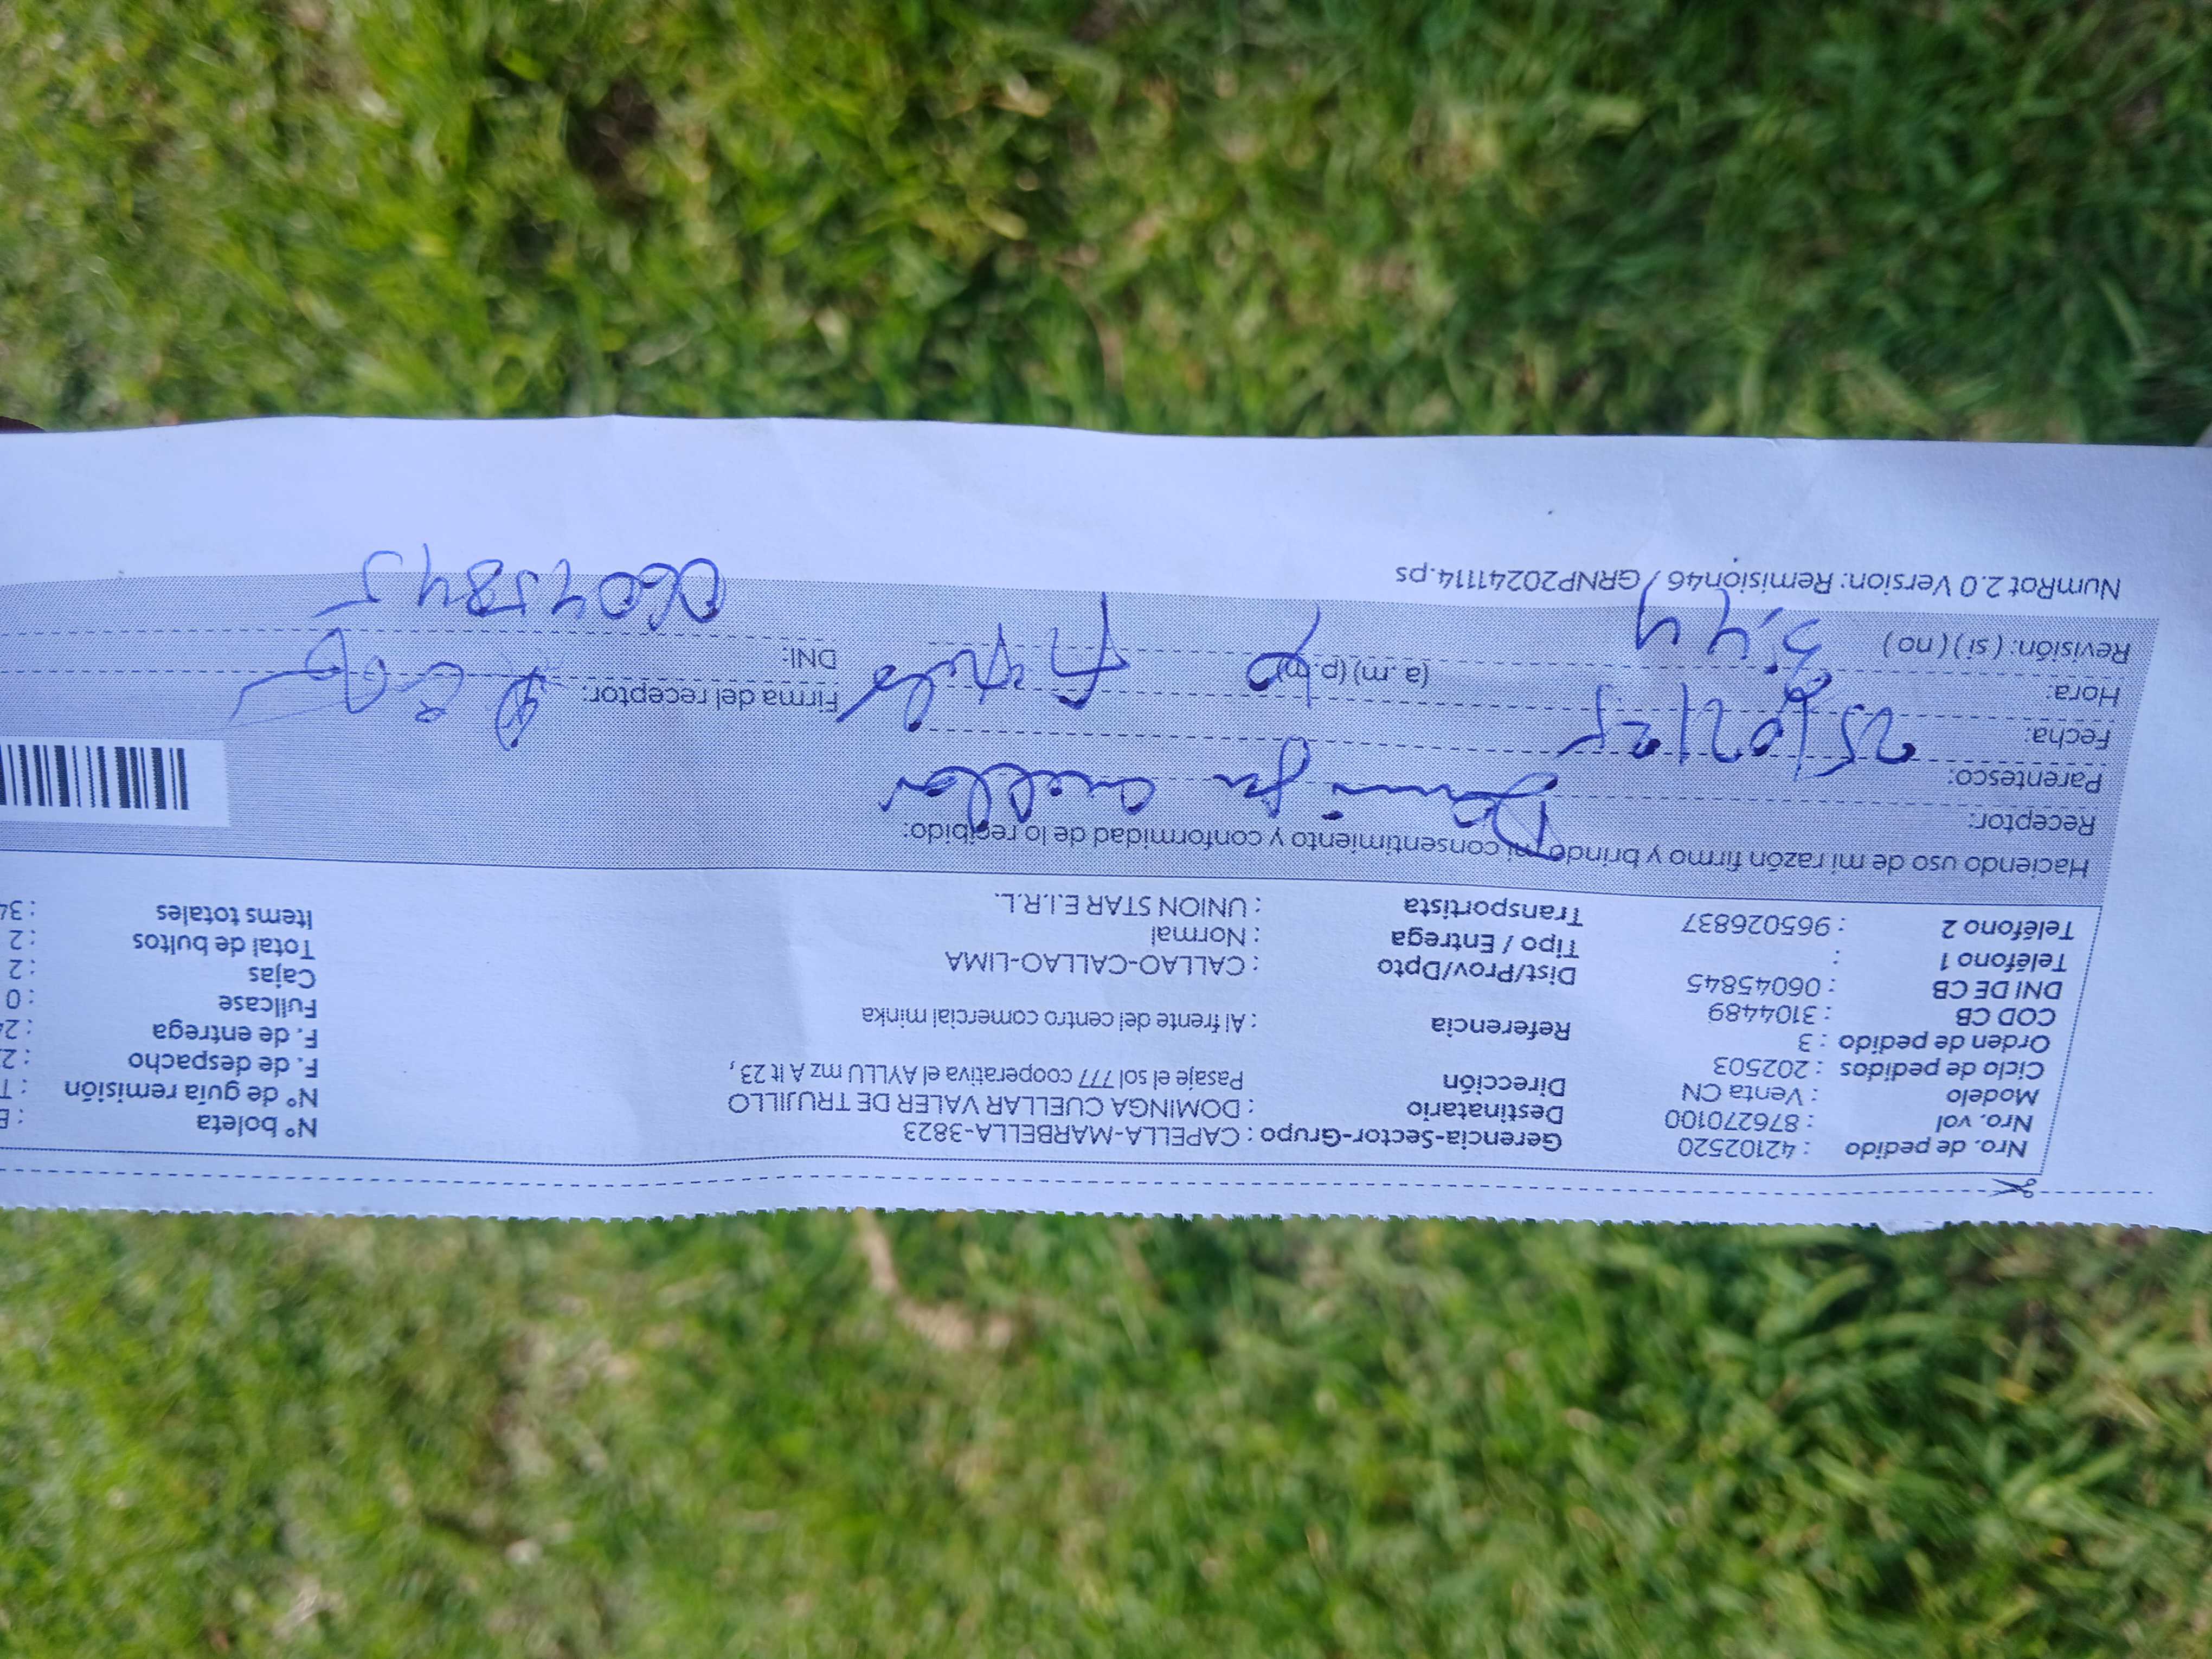 Nro. de pedido : 42102520 Gerencia-Sector-Grupo : CAPELLA-MARBELLA-3823 N° boleta :
Nro. vol : 876270100 Destinatario : DOMINGA CUELLAR VALER DE TRUJILLO N° de guía remisión :
Modelo : Venta CN Dirección Pasaje el sol 777 cooperativa el AYLLU mz A lt 23, F. de despacho : 2
Ciclo de pedidos : 202503 F. de entrega : 2
Orden de pedido : 3 Referencia : Al frente del centro comercial minka Fullcase : 0
COD CB : 3104489 Cajas : 2
DNI DE CB : 06045845 Dist/Prov/Dpto : CALLAO-CALLAO-LIMA Total de bultos : 2
Teléfono 1 : Tipo / Entrega : Normal Items totales : 34
Teléfono 2 : 965026837 Transportista : UNION STAR E.I.R.L.
Haciendo uso de mi razón firmo y brindo mi consentimiento y conformidad de lo recibido:
Receptor: Dominga cuellar
Parentesco:
Fecha: 25/02/25
Hora: 3,44 (a.m) (p.m) Firma del receptor:
Revisión: (si) (no) DNI: 06045845
NumRot 2.0 Version: Remision46 / GRNP20241114.ps